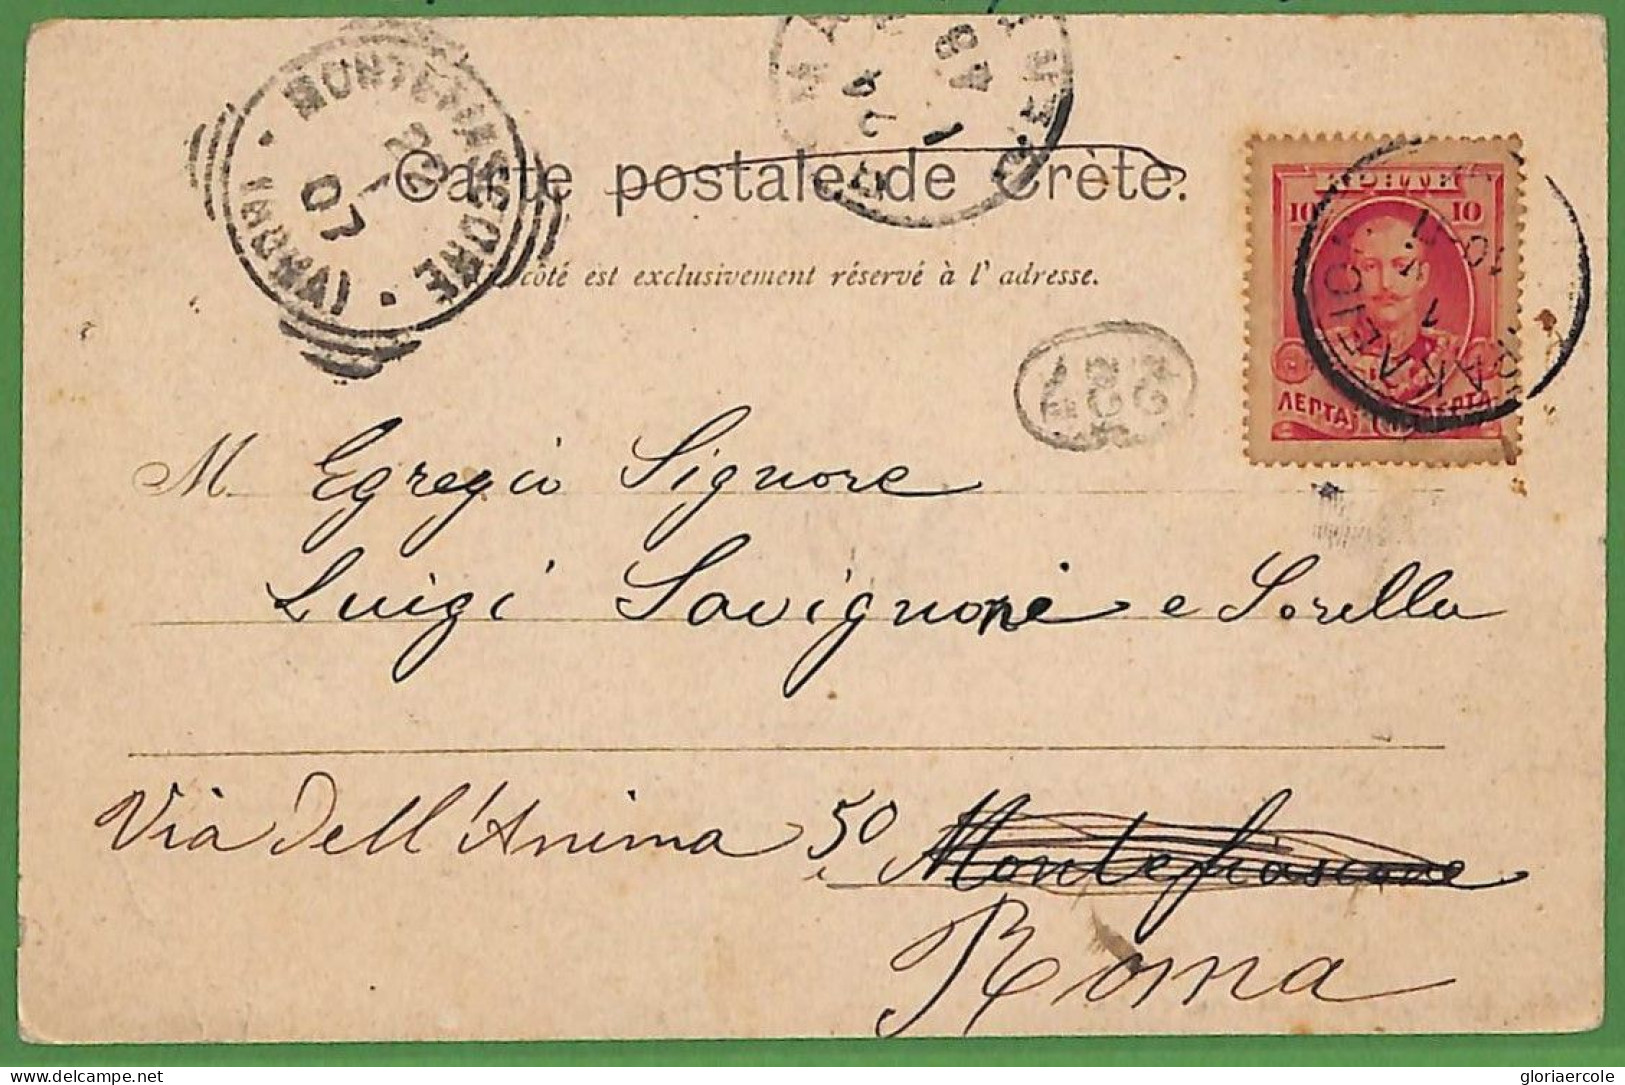 MONTEFIASCONE
22
1
07
24
1
Carte postale de Crète.
côté est exclusivement réservé à l' adresse.
ΚΡΗΤΗ
10 10
ΛΕΠΤΑ ΛΕΠΤΑ
227
M Egregio Signore
Luigi Savignoni e Sorella
Via Dell'Anima 50 Montefiascone
Roma
delcampe.net
gloriaercole